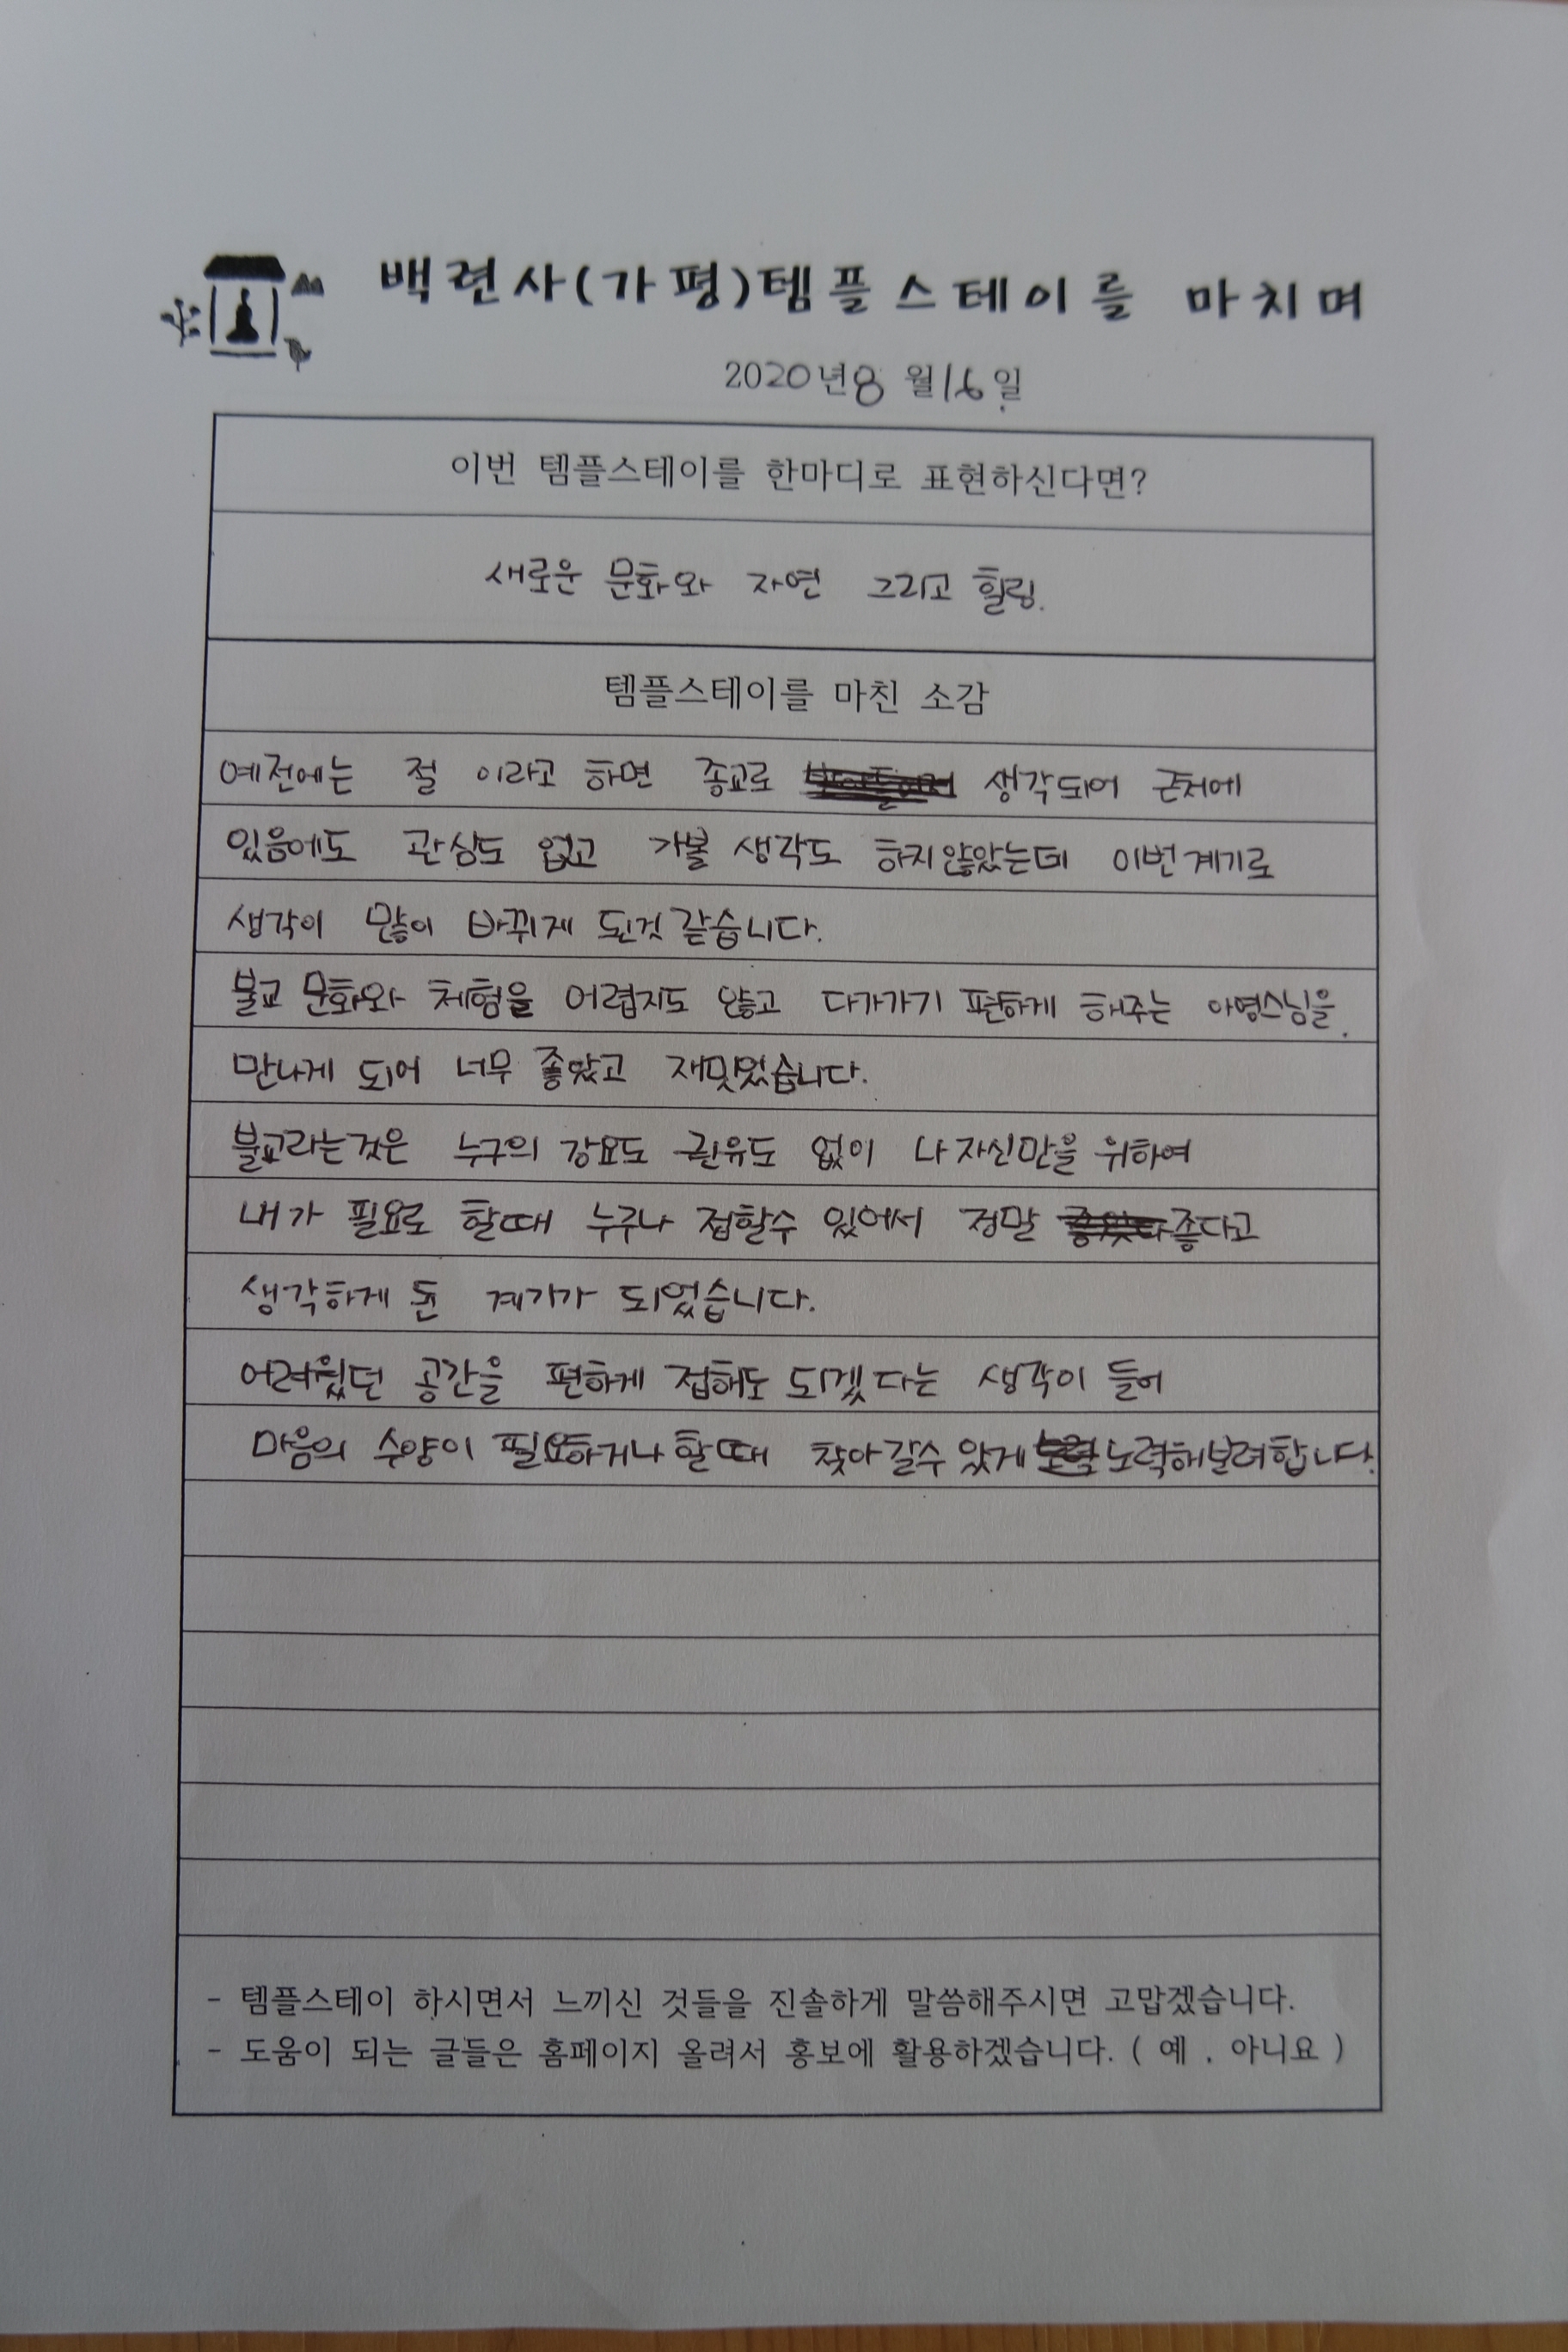 백련사(가평)템플스테이를 마치며
2020년 8월 16일
이번 템플스테이를 한마디로 표현하신다면?
새로운 문화와 자연 그리고 힐링.
템플스테이를 마친 소감
예전에는 절 이라고 하면 종교로 생각되어 근처에
있음에도 관심도 없고 가볼 생각도 하지않았는데 이번계기로
생각이 많이 바뀌게 된것 같습니다.
불교 문화와 체험을 어렵지도 않고 다가가기 편하게 해주는 아영스님을
만나게 되어 너무 좋았고 재밌었습니다.
불교라는것은 누구의 강요도 권유도 없이 나 자신만을 위하여
내가 필요로 할때 누구나 접할수 있어서 정말 좋다고
생각하게 된 계기가 되었습니다.
어려웠던 공간을 편하게 접해도 되겠다는 생각이 들어
마음의 수양이 필요하거나 할때 찾아갈수 있게 노력해보려합니다.
- 템플스테이 하시면서 느끼신 것들을 진솔하게 말씀해주시면 고맙겠습니다.
- 도움이 되는 글들은 홈페이지 올려서 홍보에 활용하겠습니다. ( 예 . 아니요 )